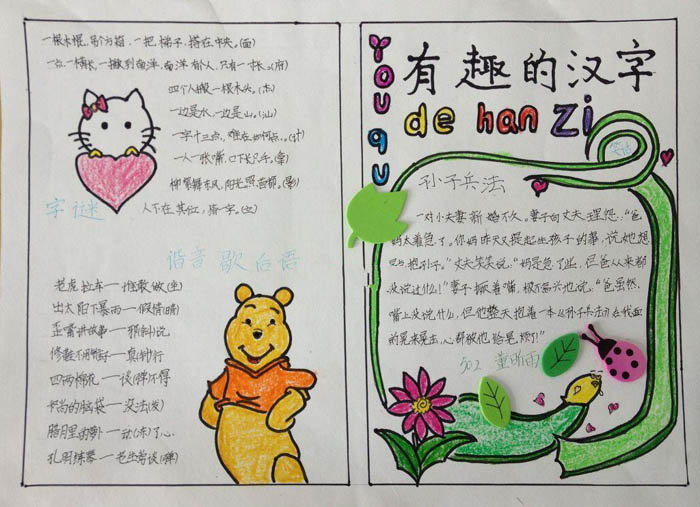 一根木棍，吊个方箱，一把梯子，搭在中央。(面)
一点一横长，一撇到南洋，南洋有个人，只有一寸长。(府)
四个人搬一根木头。(杰)
一边是水，一边是山。(汕)
一字十三点，难在如何点。(汁)
一人一张嘴，口下长只手。(拿)
人下在其位，猜一字。(立)
字谜
谐音歇后语
老虎拉车一谁敢做(坐)
出太阳下暴雨一假情(晴)
歪嘴讲故事一邪说
四两棉花一谈(弹)不得
和尚的脑袋一没法(发)
腊月里的萝卜一动(冻)了心
孔明练琴一老生常谈(弹)
you qu
有趣的汉字
de han zi
笑话
孙子兵法
一对小夫妻新婚不久。妻子向丈夫埋怨：“爸
妈太着急了。你妈昨天又提起生孩子的事，说她想
早点抱孙子。”丈夫笑笑说：“妈是急了些，但爸从来都
没说过什么!”妻子撅着嘴，极不高兴地说：“爸虽然
嘴上没说什么，但他整天抱着一本《孙子兵法》在我面
前晃来晃去，心都被他给晃烦了!”
502 董昕雨